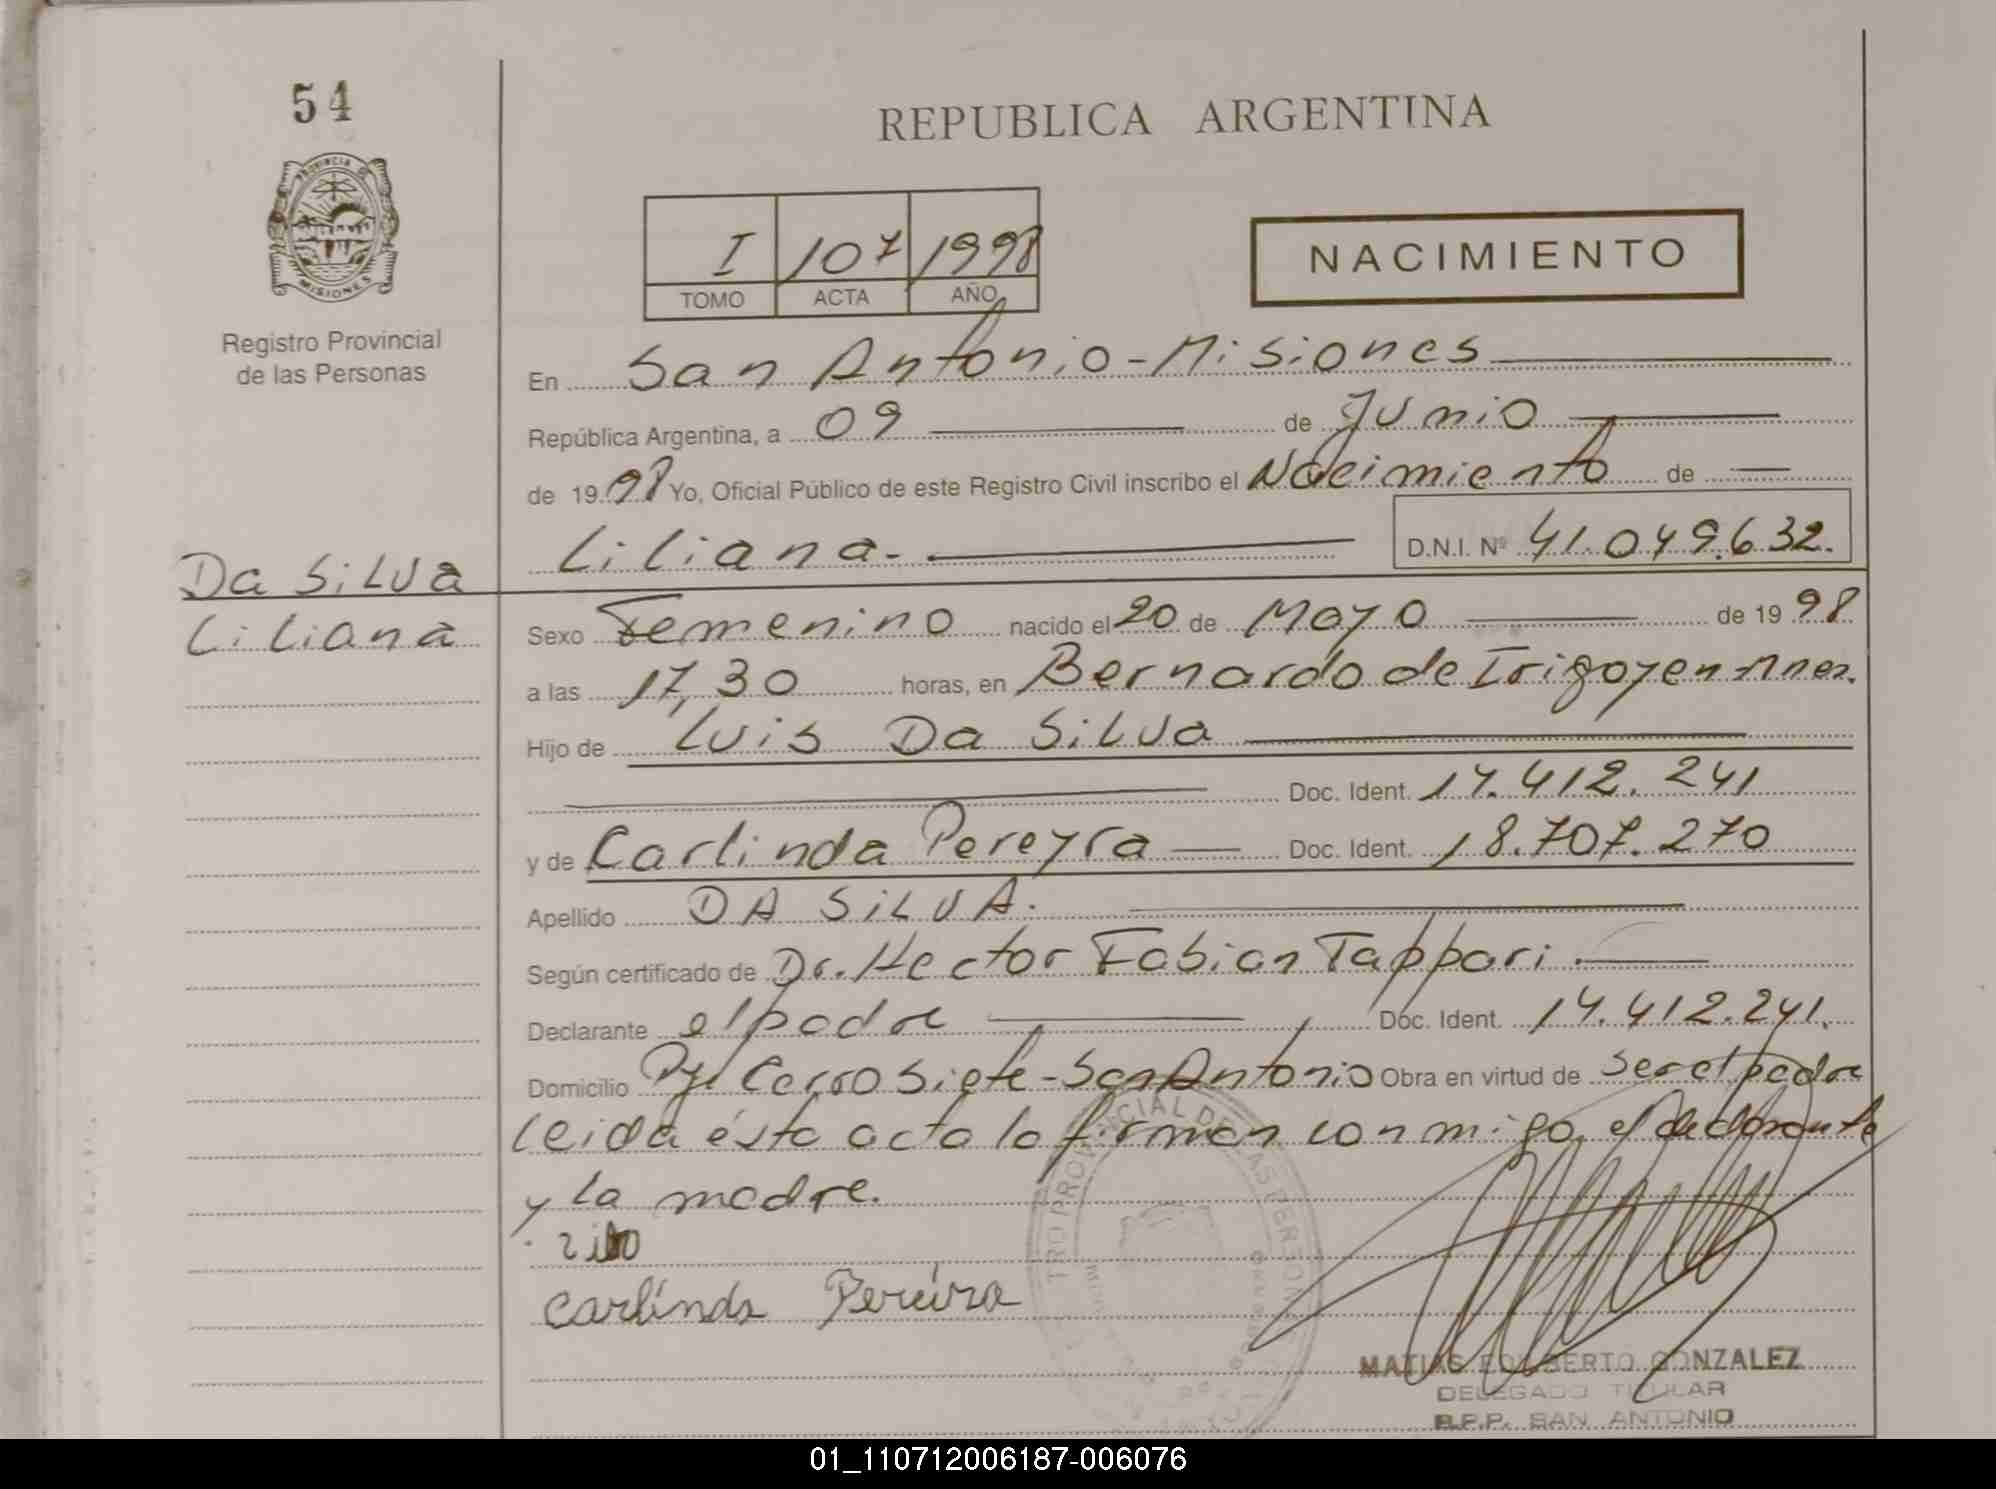 54
PROVINCIA DE
MISIONES
Registro Provincial
de las Personas
Da Silva
Liliana
REPUBLICA ARGENTINA
I 107 1998
TOMO ACTA AÑO
NACIMIENTO
En San Antonio - Misiones
República Argentina, a 09 de Junio
de 19 98 Yo, Oficial Público de este Registro Civil inscribo el Nacimiento de
Liliana.- D.N.I. Nº 41.049.632.
Sexo Femenino nacido el 20 de Mayo de 19 98
a las 17,30 horas, en Bernardo de Irigoyen - Mnes.
Hijo de Luis Da Silva
Doc. Ident. 14.412.241
y de Carlinda Pereyra Doc. Ident. 18.707.270
Apellido DA SILVA.
Según certificado de Dr. Hector Fabian Tappari.
Declarante el padre Doc. Ident. 14.412.241.
Domicilio Pje Cerro Siete - San Antonio Obra en virtud de ser el padre
Leida ésta acta la firman conmigo, el declarante
y la madre.
Carlinda Pereira
MATIAS GONZALEZ
DELEGADO TITULAR
R.P.P. SAN ANTONIO
01_110712006187-006076